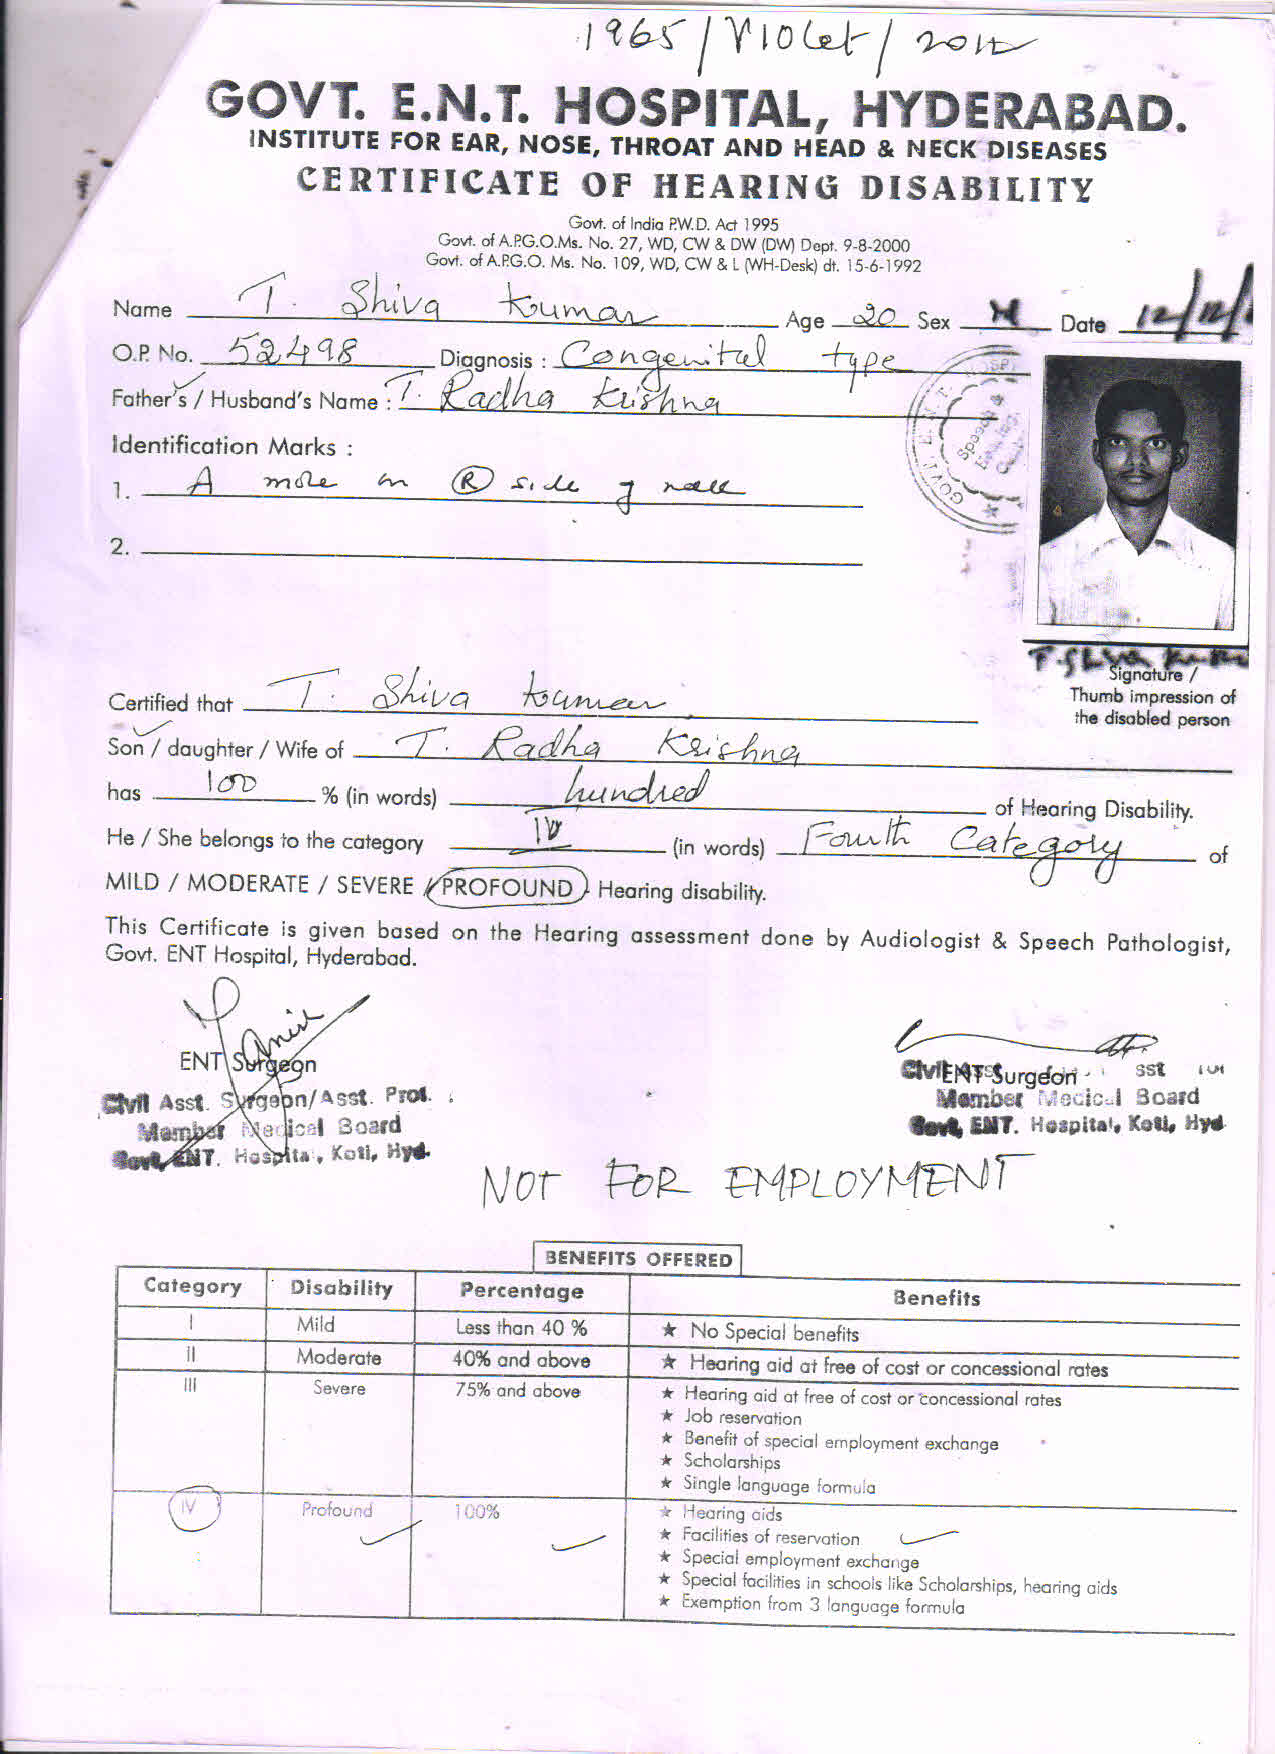 1965/Violet/2012
GOVT. E.N.T. HOSPITAL, HYDERABAD.
INSTITUTE FOR EAR, NOSE, THROAT AND HEAD & NECK DISEASES
CERTIFICATE OF HEARING DISABILITY
Govt. of India P.W.D. Act 1995
Govt. of A.P.G.O.Ms. No. 27, WD, CW & DW (DW) Dept. 9-8-2000
Govt. of A.P.G.O. Ms. No. 109, WD, CW & L (WH-Desk) dt. 15-6-1992
Name T. Shiva Kumar Age 20 Sex M Date 12/12/
O.P. No. 52498 Diagnosis : Congenital type
Father's / Husband's Name : T. Radha Krishna
Identification Marks :
1. A mole on R side of neck
2.
GOVT. E.N.T. HOSP
Speech &
T. Shiva Kumar
Signature /
Thumb impression of
the disabled person
Certified that T. Shiva Kumar
Son / daughter / Wife of T. Radha Krishna
has 100 % (in words) hundred of Hearing Disability.
He / She belongs to the category IV (in words) Fourth Category of
MILD / MODERATE / SEVERE / PROFOUND / Hearing disability.
This Certificate is given based on the Hearing assessment done by Audiologist & Speech Pathologist,
Govt. ENT Hospital, Hyderabad.
ENT Surgeon
Civil Asst. Surgeon/Asst. Prof.
Member Medical Board
Govt. ENT. Hospital, Koti, Hyd.
ENT Surgeon
Member Medical Board
Govt. ENT. Hospital, Koti, Hyd
NOT FOR EMPLOYMENT
BENEFITS OFFERED
Category Disability Percentage Benefits
I Mild Less than 40 % ★ No Special benefits
II Moderate 40% and above ★ Hearing aid at free of cost or concessional rates
III Severe 75% and above ★ Hearing aid at free of cost or concessional rates
★ Job reservation
★ Benefit of special employment exchange
★ Scholarships
★ Single language formula
IV Profound 100% ★ Hearing aids
★ Facilities of reservation
★ Special employment exchange
★ Special facilities in schools like Scholarships, hearing aids
★ Exemption from 3 language formula